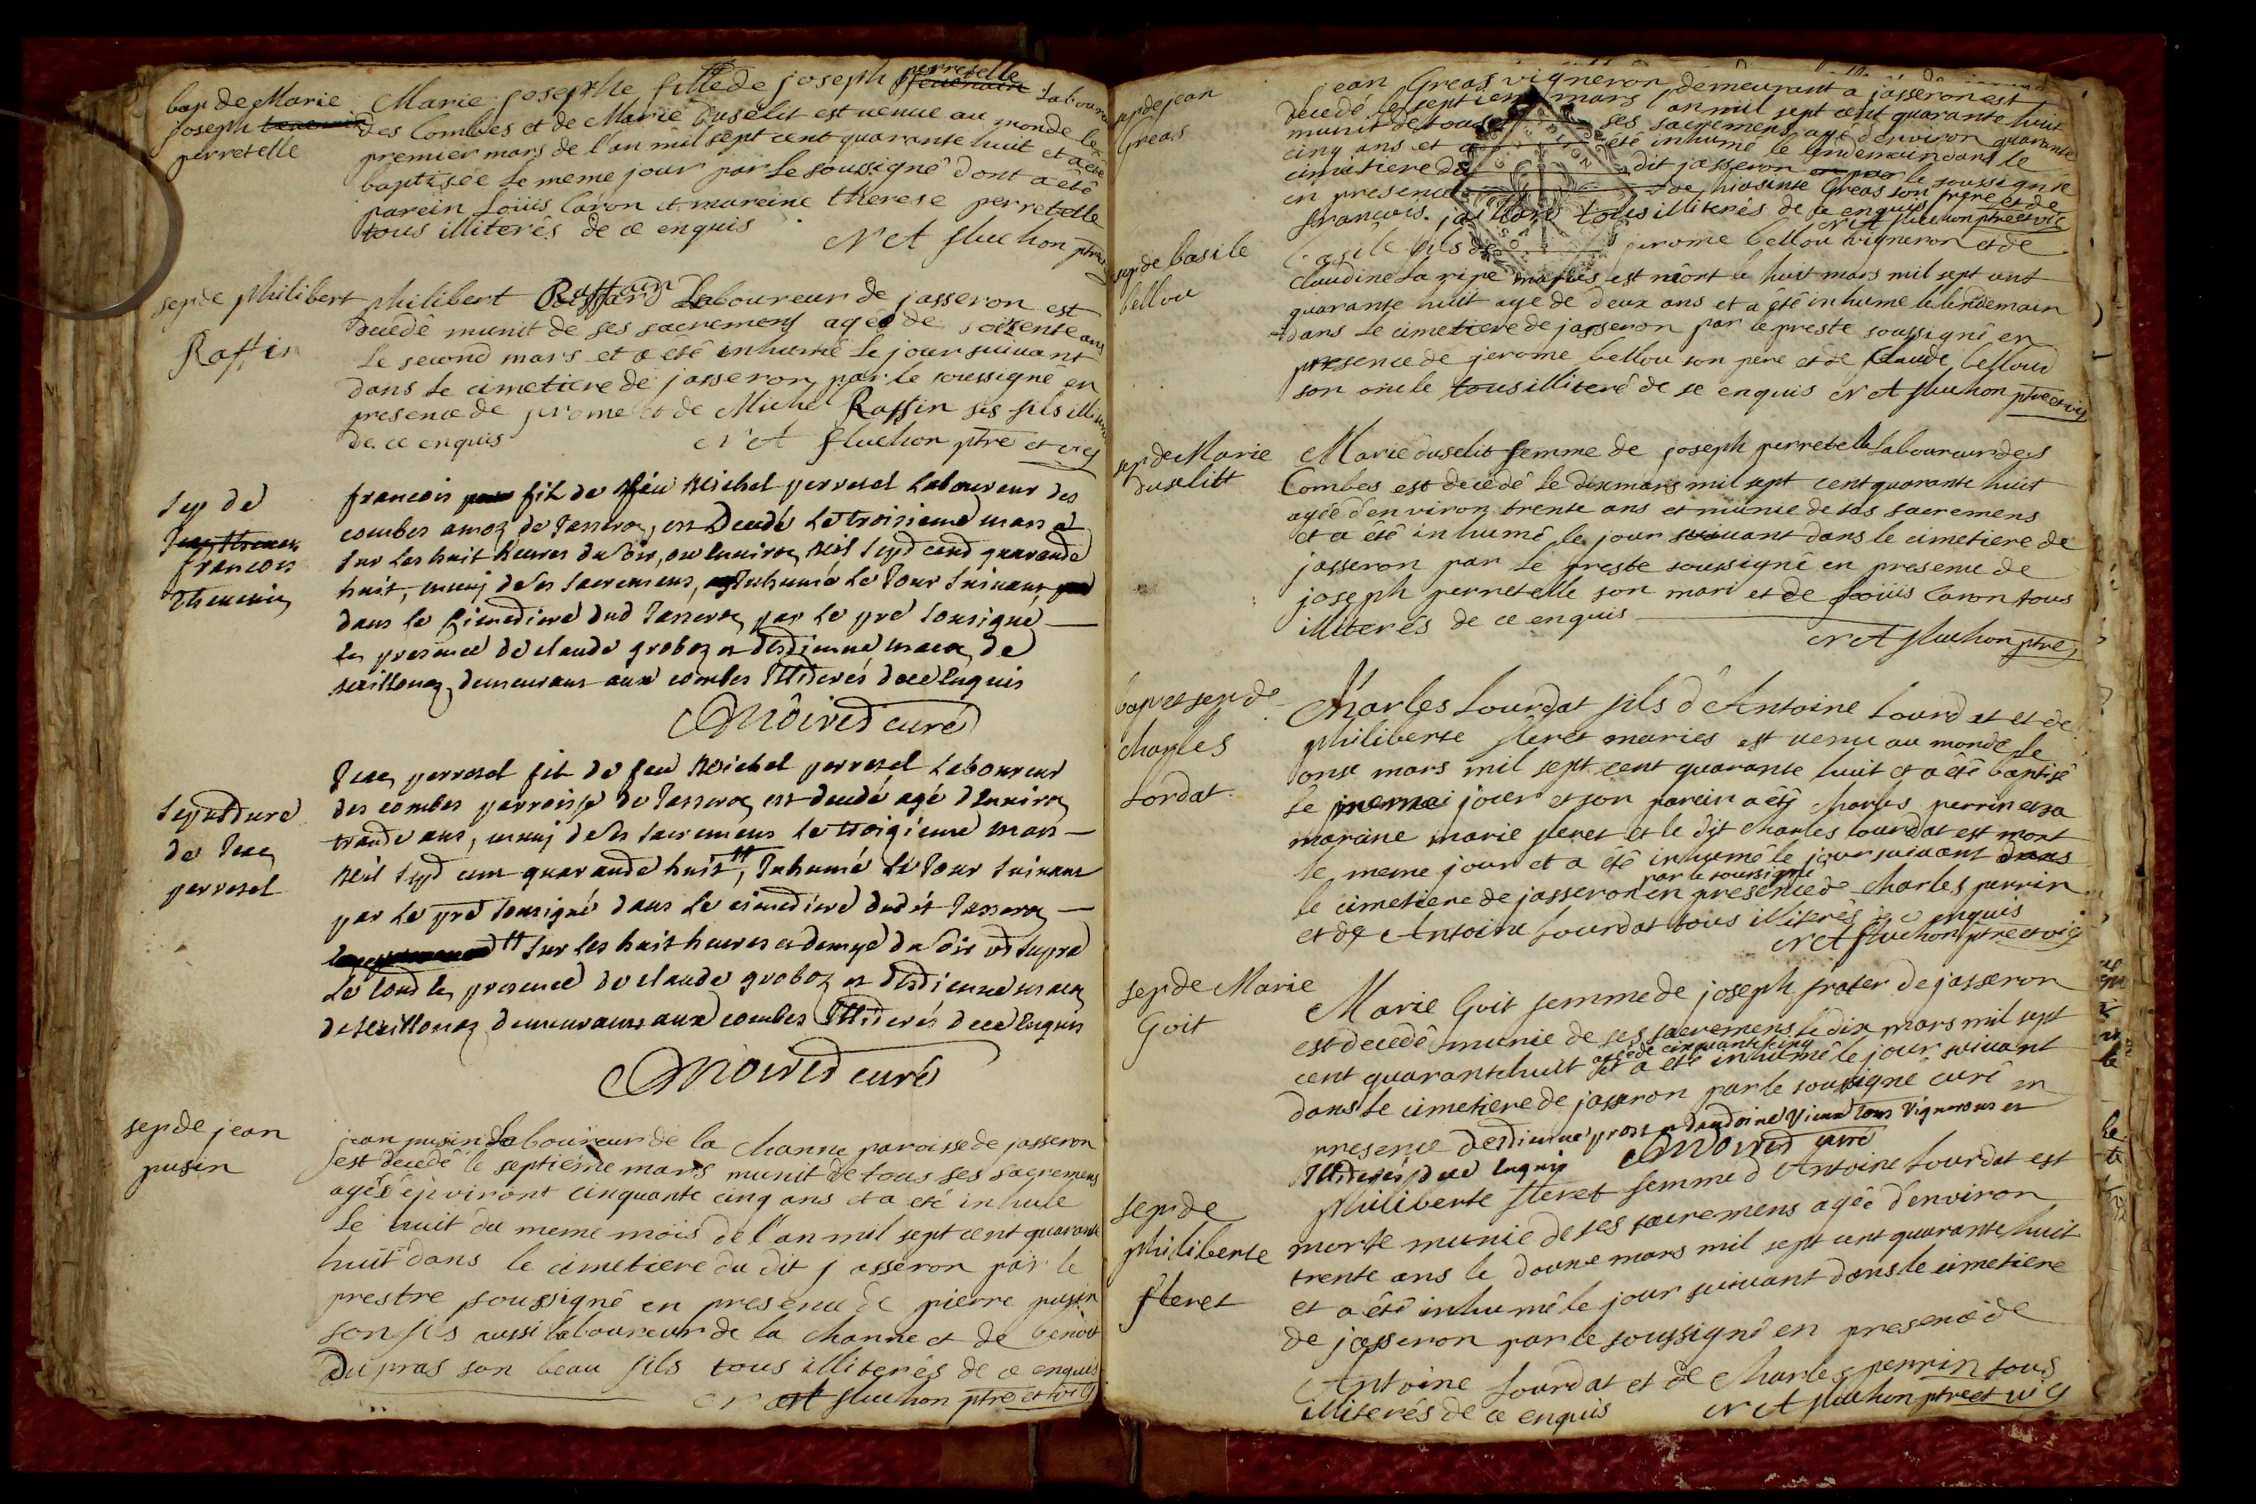 bap de Marie
joseph
perretelle
Marie josephte fille de joseph perretelle laboureur
des Combes et de Marie Duselit est venue au monde le
premier mars de l'an mil sept cent quarante huit et a ete
baptisée le meme jour par le soussigné dont a êté
parein Loüis Caron et mareine therese perretelle
tous illiterés de ce enquis
N A fluchon ptre
sep de philibert
Raffin
philibert Raffin Laboureur de jasseron est
decedé munit de ses sacremens agé de soixente ans
le second mars et a été inhumé le jour suivant
dans le cimetiere de jasseron par le soussigné en
presence de jerome et de Michel Raffin ses fils illiterés
de ce enquis
N A fluchon ptre et vic
sep de
francois
thevenin
francois fil de feu Michel perretel Laboureur des
combes de Jasseron, est Decedé Le troisieme mars
sur Les huit heures du soir, ou Environ, Mil sept cent quarante
huit, muni de ses sacremens, Inhumé Le Jour suivant
dans le Cimetiere dud Jasseron, par Le ptre sousigné
En presence de claude groboz et d'Estienne
demeurans aux combes Illiterés de ce Enquis
Moiret curé
sepulture
de Jean
perretel
Jean perretel fil de feu Michel perretel Laboureur
des combes parroisse de Jasseron est decedé agé d'Environ
trante ans, muni de ses sacremens Le troisieme mars
Mil sept cent quarante huit, Inhumé Le Jour suivant
par Le ptre sousigné dans Le cimetiere dudit Jasseron
sur Les huit heures et demye du soir ut supra
Le tout En presence de claude groboz et d'Estienne
demeurans aux combes Illiterés de ce Enquis
Moiret curé
sep de jean
pusin
jean pusin Laboureur de la Channe paroisse de jasseron
est decedé le septiéme mars munit de tous ses sacremens
agé d'environt cinquante cinq ans et a été inhulé
le huit du meme mois de l'an mil sept cent quarante
huit dans le cimetiere du dit jasseron par le
prestre soussigné en presence de pierre pusin
son fils aussi laboureur de la channe et de benoit
Dupras son beau fils tous illiterés de ce enquis
N A fluchon ptre et vic
sep de jean
Greas
jean Greas vigneron demeurant a jasseron est
decedé le septieme mars l'an mil sept cent quarante huit
munit de tous ses sacremens agé d'environ quarante
cinq ans et a été inhumé le lendemain dans le
cimetiere du dit jasseron le soussigné
en presence de hiasinte Greas son frere et de
francois tous illiterés de ce enquis
N A fluchon ptre et vic
sep de basile
bellou
basile fils de jerome bellou vigneron et de
claudine La ripe mariés est môrt le huit mars mil sept cent
quarante huit agé de deux ans et a êté inhumé le lendemain
dans le cimetiere de jasseron par le preste soussigné en
presence de jerome bellou son pere et de Claude belloud
son oncle tous illiteré de se enquis N A fluchon ptre et vic
sep de Marie
duselitt
Marie duselit femme de joseph perretelle Laboureur des
Combes est decedé le dix mars mil sept cent quarante huit
agée d'environ trente ans et munie de ses sacremens
et a êté inhumé le jour suivant dans le cimetiere de
jasseron par le preste soussigné en presence de
joseph perretelle son mari et de Loüis Caron tous
illiterés de ce enquis
N A fluchon ptre
bap et sep de
charles
Lordat
Charles Lourdat fils d'Antoine Lourdat et de
philiberte fleret mariés est venu au monde le
onse mars mil sept cent quarante huit et a êté baptisé
le meme jour et son parein a été charles perrin et sa
maraine marie fleret et le dit charles lourdat est mort
le meme jour et a êté inhumé le jour suivant dans
le cimetiere de jasseron par le soussigné en presence de charles perrin
et de Antoine Lourdat tous illiterés de ce enquis
N A fluchon ptre et vic
sep de Marie
Goit
Marie Goit femme de joseph frater de jasseron
est decedé munie de ses sacremens le dix mars mil sept
cent quarante huit agée de cinquante cinq et a êté inhumé le jour suivant
dans le cimetiere de jasseron par le soussigné curé en
presence d'estienne et d'andoine tous vignerons et
Illiterés de ce Enquis Moiret curé
sep de
philiberte
fleret
philiberte fleret femme d'Antoine Lourdat est
morte munie de ses sacremens agée d'environ
trente ans le douze mars mil sept cent quarante huit
et a êté inhumé le jour suivant dans le cimetiere
de jasseron par le soussigné en presence de
Antoine Lourdat et de charles perrin tous
illiterés de ce enquis N A fluchon ptre et vic